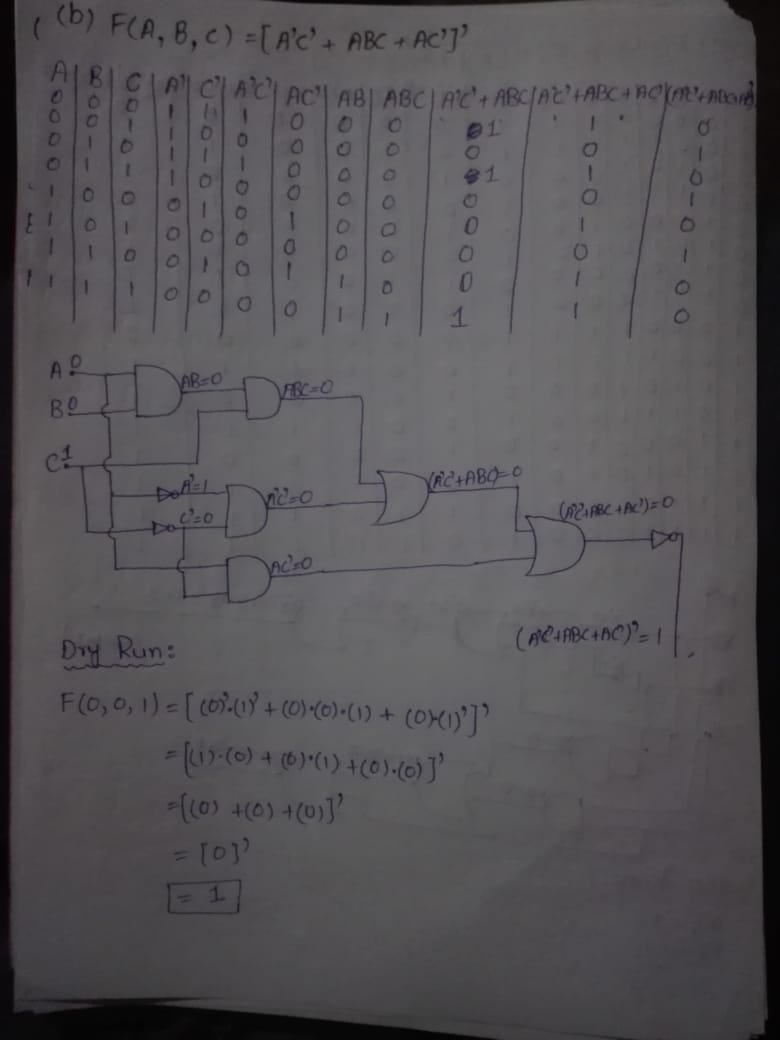 (b) F(A, B, C) = [A'C' + ABC + AC']'
A | B | C | A' | C' | A'C' | AC' | AB | ABC | A'C' + ABC | A'C' + ABC + AC' | (A'C'+ABC+AC')'
0 0 0 1 1 1 0 0 0 1 1 0
0 0 1 1 0 0 0 0 0 0 0 1
0 1 0 1 1 1 0 0 0 1 1 0
0 1 1 1 0 0 0 0 0 0 0 1
1 0 0 0 1 0 1 0 0 0 1 0
1 0 1 0 0 0 0 0 0 0 0 1
1 1 0 0 1 0 1 1 0 0 1 0
1 1 1 0 0 0 0 1 1 1 1 0
A 0
AB=0
ABC=0
B 0
C 1
A'=1
C'=0
A'C'=0
(A'C'+ABC)=0
(A'C'+ABC+AC')=0
AC'=0
(A'C'+ABC+AC')'=1
Dry Run:
F(0, 0, 1) = [(0)'.(1)' + (0).(0).(1) + (0).(1)']'
= [(1).(0) + (0).(1) + (0).(0)]'
= [(0) + (0) + (0)]'
= [0]'
= 1